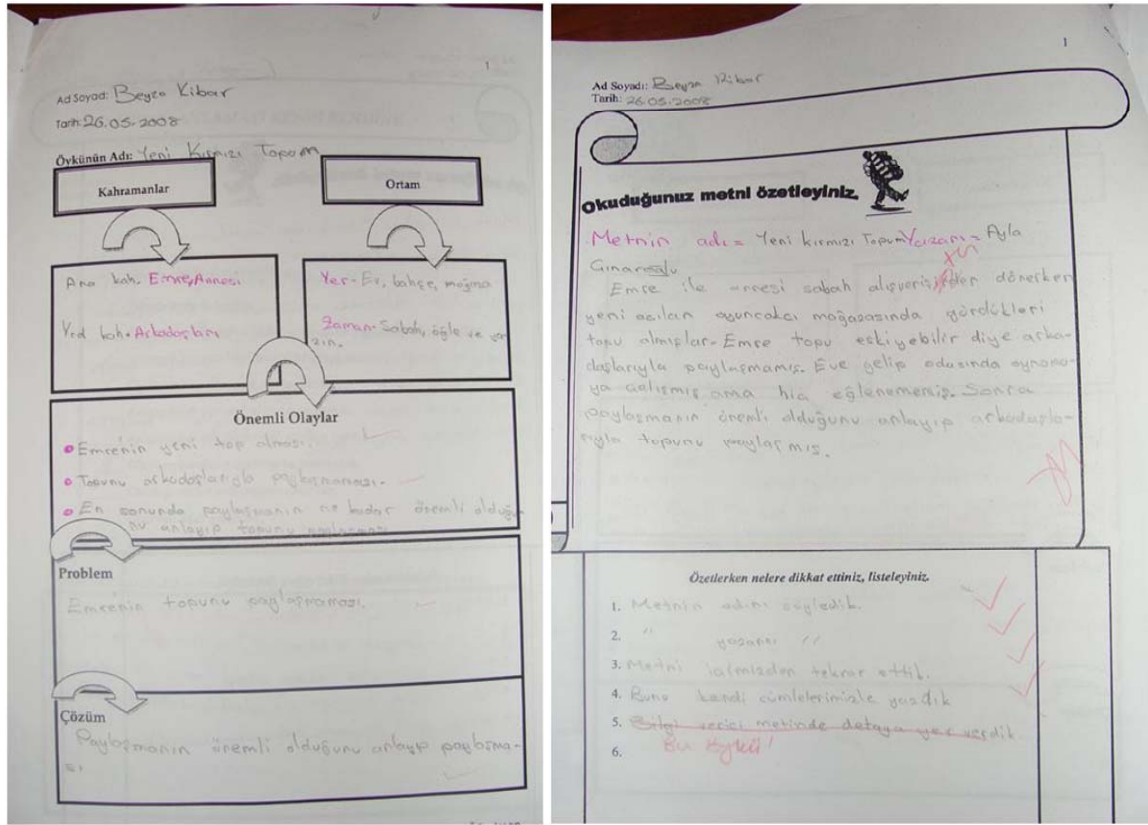 1
Ad Soyad: Beyza Kibar
Tarih: 26.05.2008
Öykünün Adı: Yeni Kırmızı Topum
Kahramanlar
Ortam
Ana kah. Emre, Annesi
Yrd kah. Arkadaşları
Yer- Ev, bahçe, mağaza
Zaman- Sabah, öğle ve
Önemli Olaylar
Emre'nin yeni top alması.
Topunu arkadaşlarıyla paylaşmaması.
En sonunda paylaşmanın ne kadar önemli olduğu-
nu anlayıp topunu
Problem
Emre'nin topunu paylaşmaması.
Çözüm
Paylaşmanın önemli olduğunu anlayıp paylaşma-
sı.
1
Ad Soyadı: Beyza Kibar
Tarih: 26.05.2008
Okuduğunuz metni özetleyiniz.
Metnin adı= Yeni kırmızı Topum Yazarı= Ayla
Çınaroğlu
Emre ile annesi sabah alışverişinden dönerken
yeni açılan oyuncakcı mağazasında gördükleri
topu almışlar. Emre topu eskiyebilir diye arka-
daşlarıyla paylaşmamış. Eve gelip odasında oynama-
ya çalışmış ama hiç eğlenememiş. Sonra
paylaşmanın önemli olduğunu anlayıp arkadaşla-
rıyla topunu paylaşmış.
Özetlerken nelere dikkat ettiniz, listeleyiniz.
1. Metnin adını söyledik.
2. " yazarını "
3. Metni içimizden tekrar ettik.
4. Bunu kendi cümlelerimizle yazdık
5. Bilgi verici metinde detaya yer verdik.
6. Bu öykü!